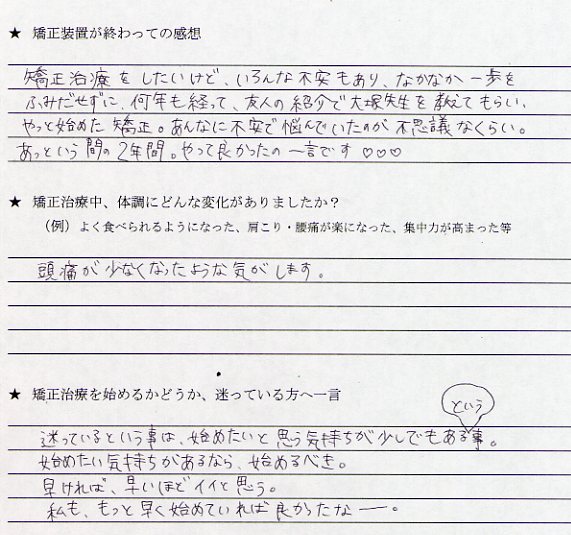 ★ 矯正装置が終わっての感想
矯正治療をしたいけど、いろんな不安もあり、なかなか一歩を
ふみだせずに、何年も経って、友人の紹介で大塚先生を教えてもらい、
やっと始めた矯正。あんなに不安で悩んでいたのが不思議なくらい。
あっという間の2年間。やって良かったの一言です♡♡♡
★ 矯正治療中、体調にどんな変化がありましたか？
（例）よく食べられるようになった、肩こり・腰痛が楽になった、集中力が高まった等
頭痛が少なくなったような気がします。
★ 矯正治療を始めるかどうか、迷っている方へ一言
という
迷っているという事は、始めたいと思う気持ちが少しでもある事。
始めたい気持ちがあるなら、始めるべき。
早ければ、早いほどイイと思う。
私も、もっと早く始めていれば良かったなー。